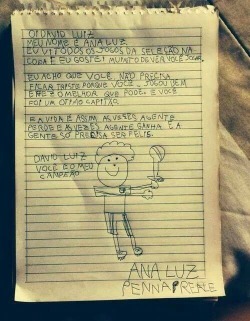 OI DAVID LUIZ
MEU NOME É ANA LUZ
EU VI TODOS OS JOGOS DA SELEÇÃO NA
COPA E EU GOSTEI MUITO DE VER VOCÊ JOGAR
EU ACHO QUE VOCÊ NÃO PRECISA
FICAR TRISTE PORQUE VOCÊ JOGOU BEM
E FEZ O MELHOR QUE PODE E VOCÊ
FOI UM OTIMO CAPITÃO
E A VIDA É ASSIM AS VESES AGENTE
PERDE E AS VESES AGENTE GANHA E A
GENTE SO PRECISA SER FELIS.
DAVID LUIZ
VOCÊ É O MEU
CAMPEÃO
ANA LUZ
PENNA